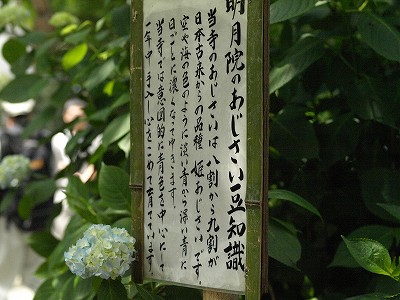 明月院のあじさい豆知識
当寺のあじさいは八割から九割が
日本古来からの品種 姫あじさいです。
空や海の色のように淡い青から深い青に
日ごとに濃くなってゆきます。
当寺では意図的に青色を中心にして
一年中 手入れ 心をこめて育てています